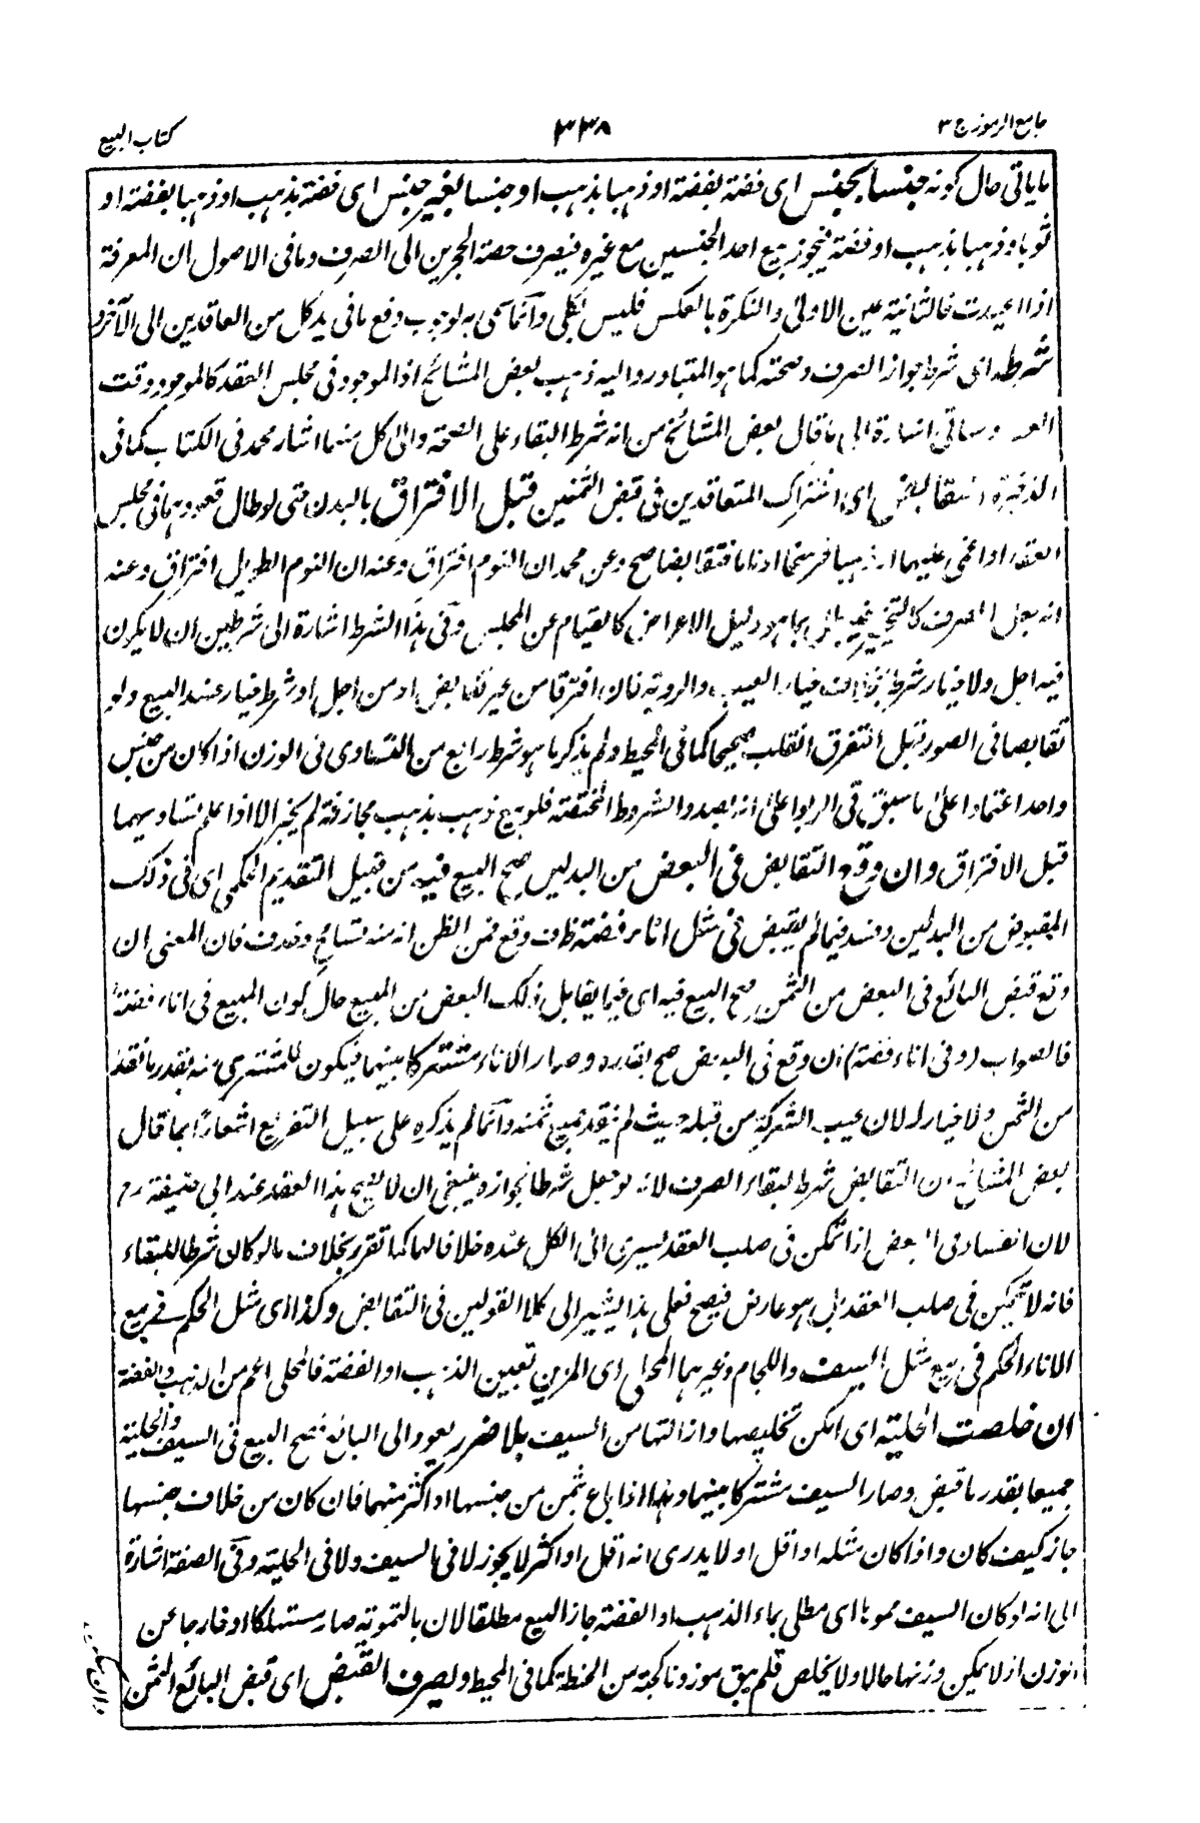 جامع الرموز ج ٣
٣٣٨
كتاب البيع
ما ياتى حال كونه جنسا بجنس اى فضة بفضة او ذهبا بذهب او جنسا بغير جنس اى فضة بذهب او ذهبا بفضة او
ثوبا و ذهبا بذهب او فضة فيجوز بيع احد الجنسين مع غيره فيصرف حصة الحجرين الى الصرف وما فى الاصول ان المعرفة
اذا اعيدت فالثانية عين الاولى والنكرة بالعكس فليس بكلى وانما سمى به لوجوب دفع ما فى يد كل من العاقدين الى الآخر و
شرطه اى شرط جواز الصرف وصحته كما هو المتبادر واليه ذهب بعض المشائخ اذ الموجود فى مجلس العقد كالموجود وقت
وسياتى اشارة الى ما قال بعض المشائخ من انه شرط البقاء على الصحة والى كل منهما اشار محمد فى الكتاب كما فى
الذخيرة التقابض اى اشتراك المتعاقدين فى قبض الثمنين قبل الافتراق بالبدن حتى لو طال قعودهما فى مجلس
العقد او اغمى عليهما او ذهبا فرسخا او ناما فتقابضا صح وعن محمد ان النوم افتراق وعنه ان النوم الطويل افتراق وعنه
انه جعل الصرف كالتخيير بما هو دليل الاعراض كالقيام عن المجلس وفى هذا الشرط اشارة الى شرطين ان لا يكون
فيه اجل ولا خيار شرط بخلاف خيار العيب والروية فان افترقا من غير تقابض او من اجل او شرط خيار عند البيع ولو
تقابضا فى الصور قبل التفرق انقلب صحيحا كما فى المحيط ولم يذكر ما هو شرط رابع من التساوى فى الوزن اذا كان من جنس
واحد اعتمادا على ما سبق فى الربوا على انه بصدد الشروط المختصة فلو بيع ذهب بذهب مجازفة لم يجز الا اذا علم تساويهما
قبل الافتراق وان وقع التقابض فى البعض من البدلين صح البيع فيه من قبيل التقديم الحكمى اى فى ذلك
المقبوض من البدلين وفسد فيما لم يقبض فى مثل اناء فضة ظرف وقع فمن الظن انه منه تسامح وحذف فان المعنى ان
وقع قبض البائع فى البعض من الثمن صح البيع فيه اى فيما يقابل ذلك البعض من المبيع حال كون المبيع فى اناء فضة
فالصواب (و فى اناء فضة) ان وقع فى البعض صح بقدره وصار الاناء مشتركا بينهما فيكون للمشترى منه بقدر ما نقد
من الثمن ولا خيار له لان عيب الشركة من قبله حيث لم ينقد جميع ثمنه وانما لم يذكره على سبيل التفريع اشعارا بما قال
بعض المشائخ ان التقابض شرط لبقاء الصرف لانه لو جعل شرطا لجوازه ينبغى ان لا يصح هذا العقد عند ابى حنيفة رح
لان الفساد فى البعض اذا تمكن فى صلب العقد يسرى الى الكل عنده خلافا لهما كما تقرر بخلاف ما لو كان شرطا للبقاء
فانه لا تمكن فى صلب العقد بل هو عارض فيصح فعلى هذا يشير الى كلا القولين فى التقابض وكذا اى مثل الحكم فى بيع
الاناء الحكم فى بيع مثل السيف واللجام وغيرهما المحلى اى المزين تعيين الذهب او الفضة فالمحلى اعم من الذهب والفضة
ان خلصت الحلية اى امكن تخليصها وازالتها من السيف بلا ضرر يعود الى البائع فصح البيع فى السيف والحلية
جميعا بقدر ما قبض وصار السيف مشتركا بينهما وهذا اذا باع بثمن من جنسها او اكثر منهما فان كان من خلاف جنسها
جاز كيف كان واذا كان مثله او اقل او لا يدرى انه اقل او اكثر لا يجوز لا فى السيف ولا فى الحلية وفى الصفة اشارة
الى انه لو كان السيف مموها اى مطلى بماء الذهب او الفضة جاز البيع مطلقا لان بالتمويه صار مستهلكا او خارجا عن
الوزن اذ لا يمكن وزنها حالا ولا يخلص فلم يبق موزونا كحبة من الحنطة كما فى المحيط ولصرف القبض اى قبض البائع الثمن